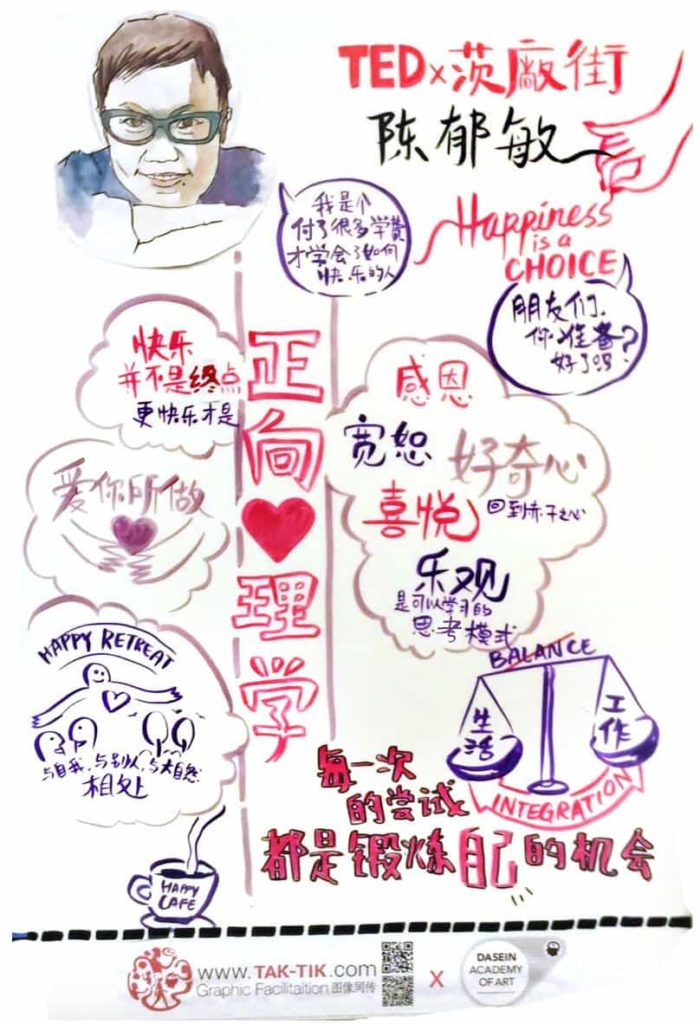 TEDx茨廠街
陈郁敏
言
Happiness
is a
CHOICE
我是个
付了很多学费
才学会了如何
快乐的人
朋友们,
你准备
好了吗?
正向♥理学
快乐
并不是终点
更快乐才是
爱你所做
HAPPY RETREAT
与自我,与别人,与大自然
相处
HAPPY
CAFE
感恩
宽恕
好奇心
回到赤子之心
喜悦
乐观
是可以学习的
思考模式
BALANCE
生活
工作
INTEGRATION
每一次
的尝试
都是锻炼自己的机会
www.TAK-TIK.com
Graphic Facilitaition 图像同传
X
DASEIN
ACADEMY
OF ART